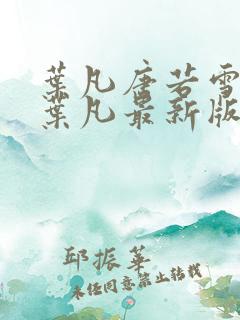 葉凡唐若雪
葉凡最新版
邱振華
未经同意禁止转载